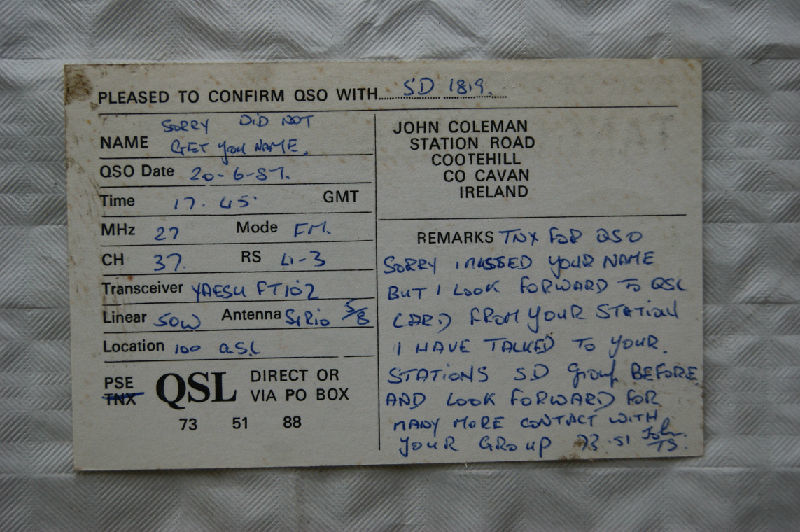 PLEASED TO CONFIRM QSO WITH SD 1819.
SORRY DID NOT
NAME GET YOU NAME.
QSO Date 20-6-87.
Time 17.45 GMT
MHz 27 Mode FM.
CH 37. RS 4-3
Transceiver YAESU FT102
Linear 50W Antenna SIRIO 5/8
Location 100 QSL
PSE
TNX QSL DIRECT OR
VIA PO BOX
73 51 88
JOHN COLEMAN
STATION ROAD
COOTEHILL
CO CAVAN
IRELAND
REMARKS TNX FOR QSO
SORRY I MISSED YOUR NAME
BUT I LOOK FORWARD TO QSL
CARD FROM YOUR STATION
I HAVE TALKED TO YOUR.
STATIONS SD Group BEFORE
AND LOOK FORWARD FOR
MANY MORE CONTACT WITH
YOUR GROUP 73.51 John